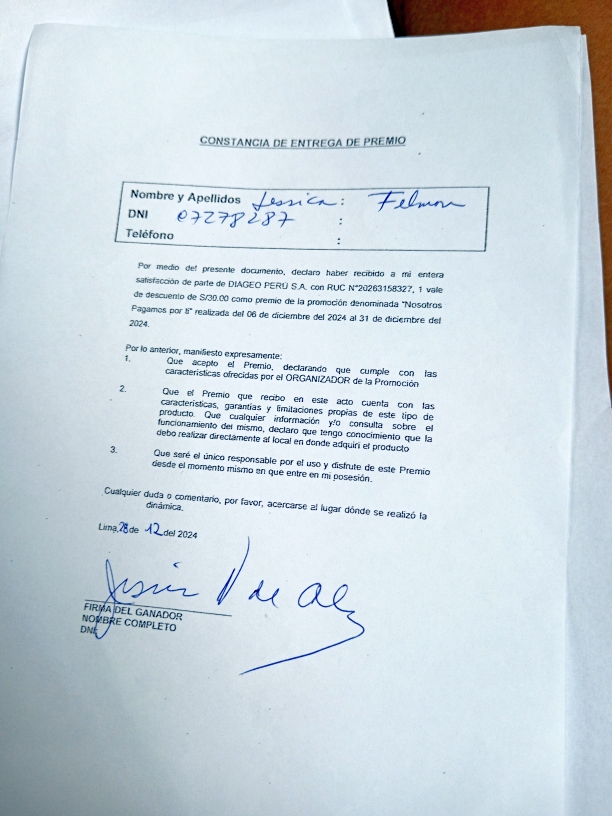 CONSTANCIA DE ENTREGA DE PREMIO
Nombre y Apellidos Jessica : Felmon
DNI 07278287 :
Teléfono :
Por medio del presente documento, declaro haber recibido a mi entera
satisfacción de parte de DIAGEO PERÚ S.A. con RUC N°20263158327, 1 vale
de descuento de S/30.00 como premio de la promoción denominada "Nosotros
Pagamos por ti" realizada del 06 de diciembre del 2024 al 31 de diciembre del
2024.
Por lo anterior, manifiesto expresamente:
1. Que acepto el Premio, declarando que cumple con las
características ofrecidas por el ORGANIZADOR de la Promoción
2. Que el Premio que recibo en este acto cuenta con las
características, garantías y limitaciones propias de este tipo de
producto. Que cualquier información y/o consulta sobre el
funcionamiento del mismo, declaro que tengo conocimiento que la
debo realizar directamente al local en donde adquirí el producto
3. Que seré el único responsable por el uso y disfrute de este Premio
desde el momento mismo en que entre en mi posesión.
Cualquier duda o comentario, por favor, acercarse al lugar dónde se realizó la
dinámica.
Lima, 28 de 12 del 2024
FIRMA DEL GANADOR
NOMBRE COMPLETO
DNI